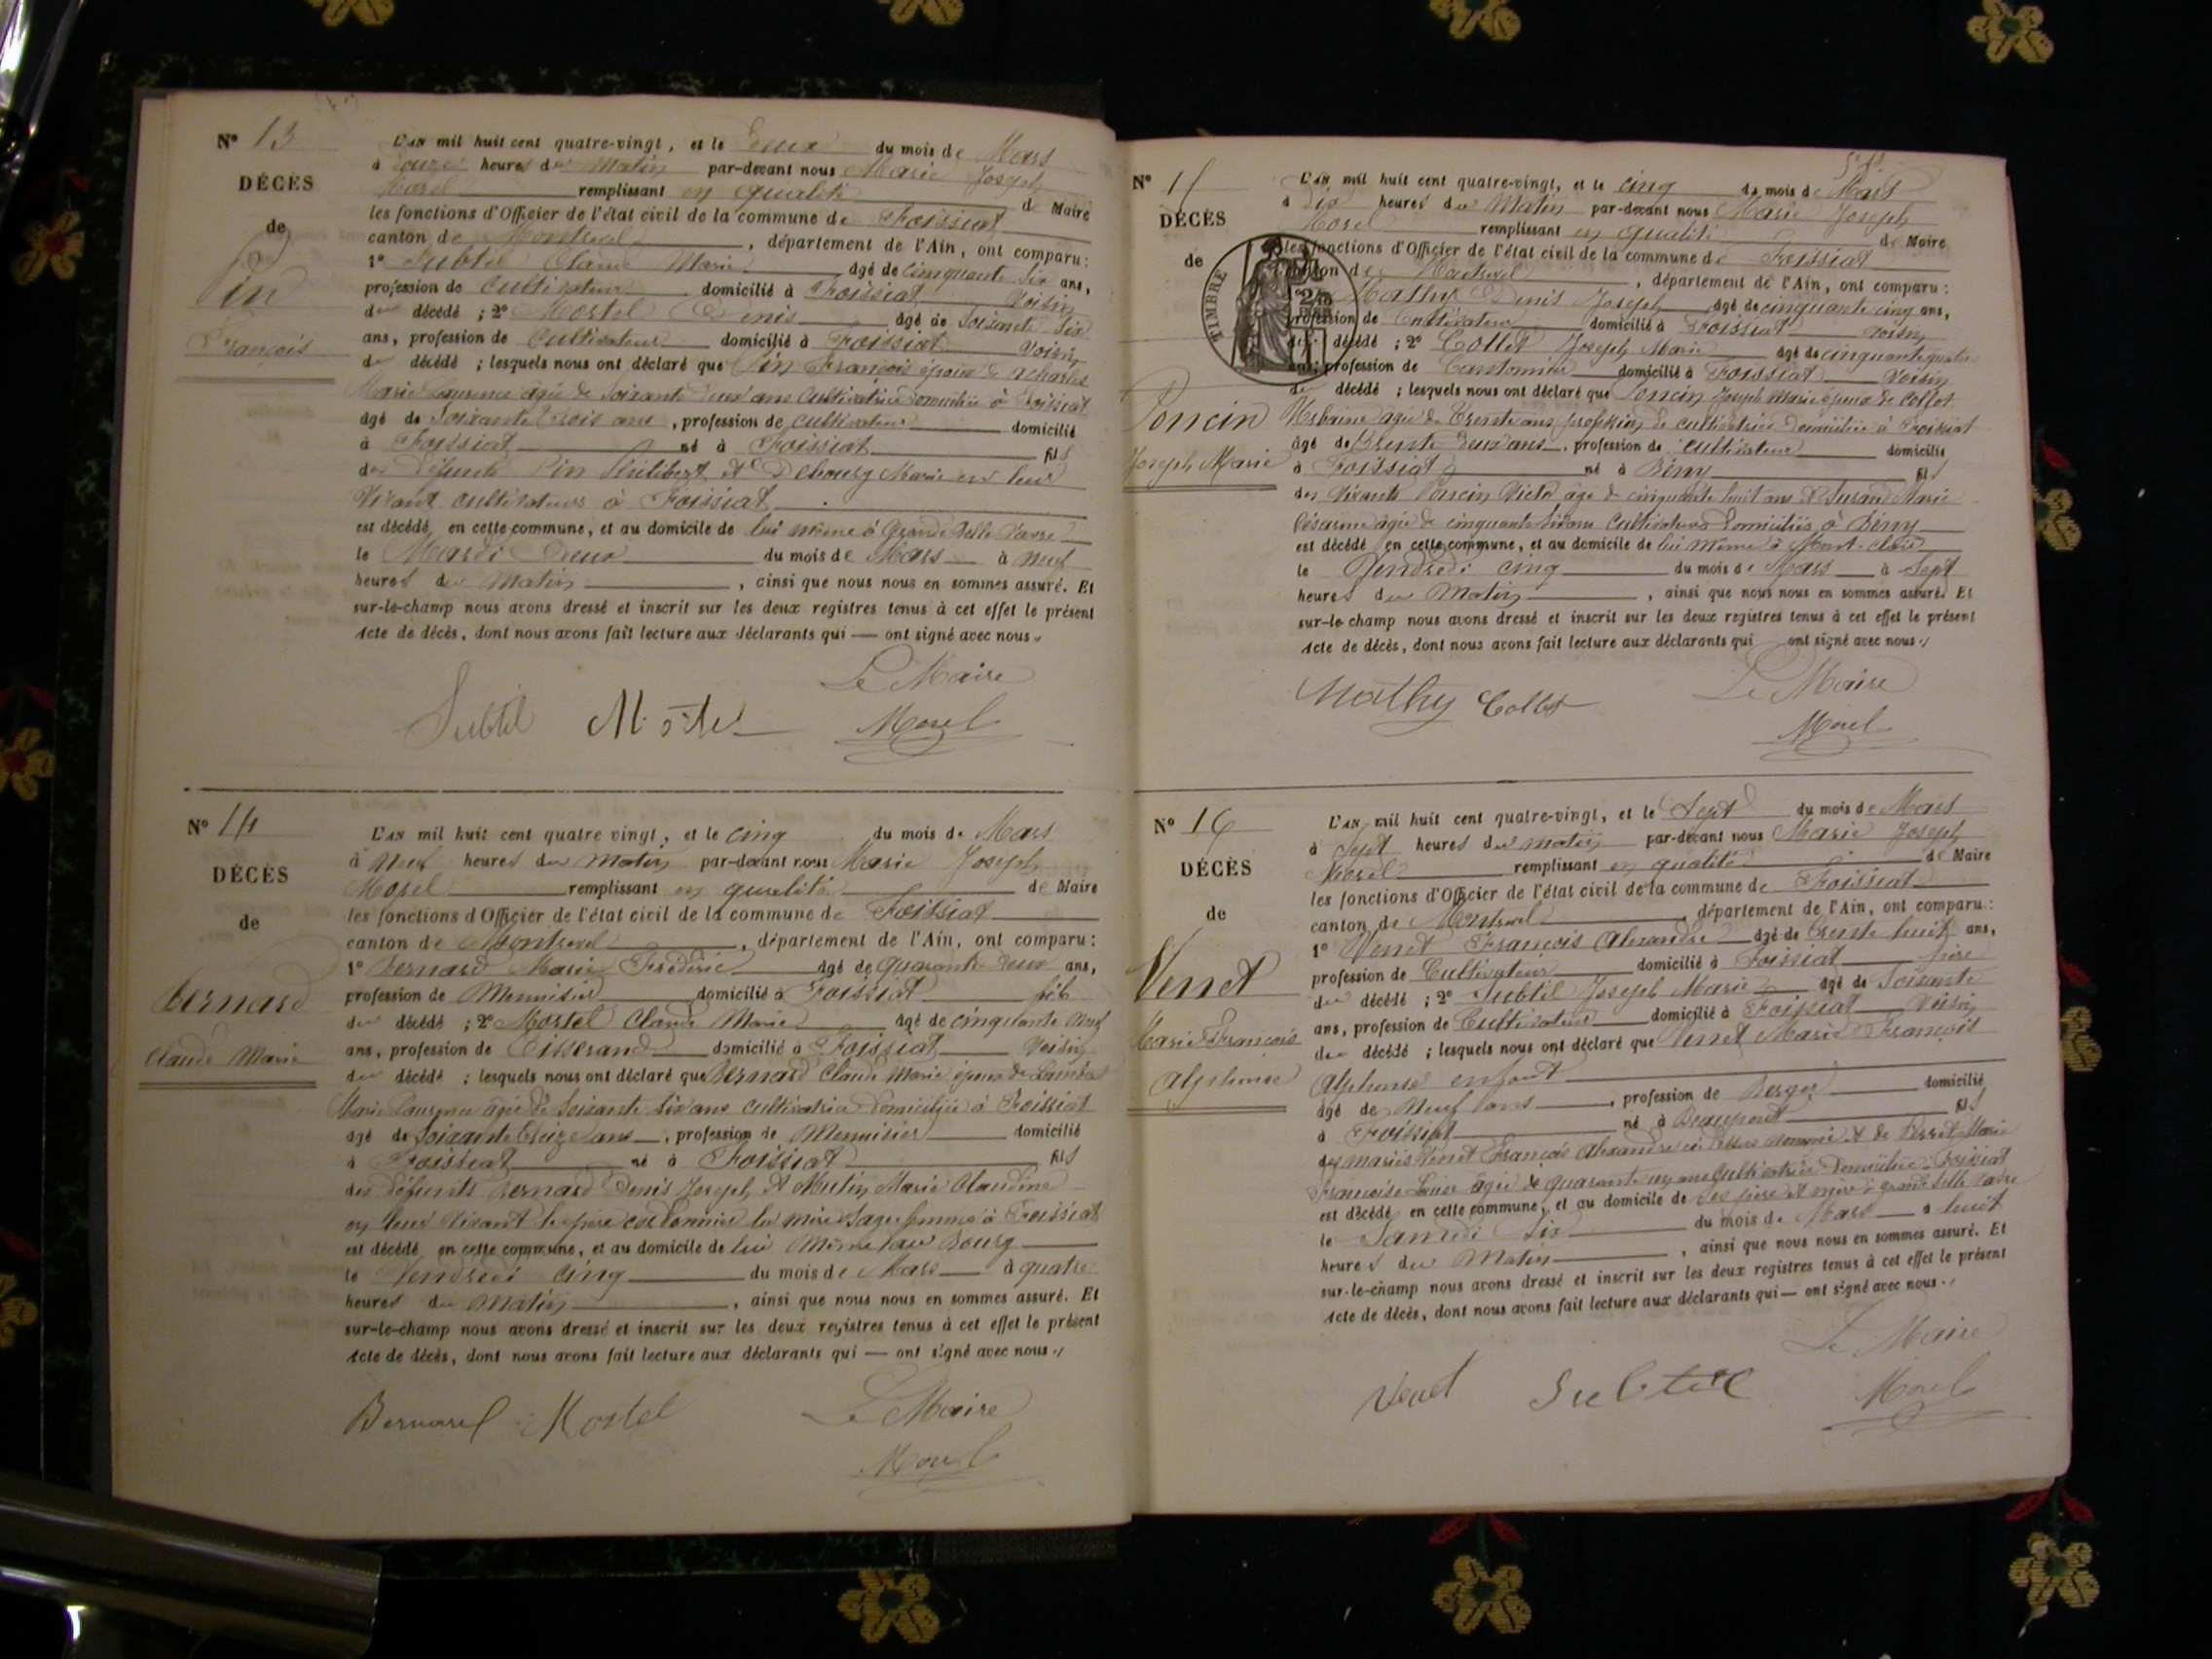 N° 13
DÉCÈS
de
Pin
François
L'AN mil huit cent quatre-vingt, et le Deux du mois de Mars
à onze heures du Matin par-devant nous Marie Joseph
Morel remplissant en qualité de Maire
les fonctions d'Officier de l'état civil de la commune de Foissiat
canton de Montrevel, département de l'Ain, ont comparu:
1° Subtil Claude Marie âgé de cinquante six ans,
profession de Cultivateur domicilié à Foissiat Voisin
du décédé ; 2° Mostel Denis âgé de Soixante Six
ans, profession de Cultivateur domicilié à Foissiat Voisin
du décédé ; lesquels nous ont déclaré que Pin François époux de
Marie Laurence âgée de Soixante deux ans Cultivatrice domiciliée à Foissiat
âgé de Soixante trois ans, profession de cultivateur domicilié
à Foissiat né à Foissiat fils
des défunts Pin Philibert et Debourg Marie en leur
Vivant cultivateurs à Foissiat
est décédé en cette commune, et au domicile de lui même à Grande Selle
le Mardi Deux du mois de Mars à Neuf
heures du Matin, ainsi que nous nous en sommes assuré. Et
sur-le-champ nous avons dressé et inscrit sur les deux registres tenus à cet effet le présent
acte de décès, dont nous avons fait lecture aux déclarants qui — ont signé avec nous.
Le Maire
Subtil Mostel Morel
N° 14
DÉCÈS
de
Bernard
Claude Marie
L'AN mil huit cent quatre vingt, et le cinq du mois de Mars
à Neuf heures du Matin par-devant nous Marie Joseph
Morel remplissant en qualité de Maire
les fonctions d'Officier de l'état civil de la commune de Foissiat
canton de Montrevel, département de l'Ain, ont comparu:
1° Bernard Marie Frédéric âgé de quarante deux ans,
profession de Menuisier domicilié à Foissiat fils
du décédé ; 2° Mostel Claude Marie âgé de cinquante Neuf
ans, profession de Tisserand domicilié à Foissiat Voisin
du décédé ; lesquels nous ont déclaré que Bernard Claude Marie époux de
Marie Laurence âgée de Soixante Six ans cultivatrice domiciliée à Foissiat
âgé de Soixante treize ans, profession de Menuisier domicilié
à Foissiat né à Foissiat fils
des défunts Bernard Denis Joseph et Mutin Marie Claudine
en leur Vivant le père cordonnier la mère Sage femme à Foissiat
est décédé en cette commune, et au domicile de lui Même au Bourg
le Vendredi cinq du mois de Mars à quatre
heures du Matin, ainsi que nous nous en sommes assuré. Et
sur-le-champ nous avons dressé et inscrit sur les deux registres tenus à cet effet le présent
acte de décès, dont nous avons fait lecture aux déclarants qui — ont signé avec nous.
Bernard Mostel Le Maire
Morel
N° 15
DÉCÈS
de
Poncin
Joseph Marie
TIMBRE
L'AN mil huit cent quatre-vingt, et le cinq du mois de Mars
à Dix heures du Matin par-devant nous Marie Joseph
Morel remplissant en qualité de Maire
les fonctions d'Officier de l'état civil de la commune de Foissiat
canton de Montrevel, département de l'Ain, ont comparu:
Mathy Denis Joseph âgé de cinquante cinq ans,
profession de Cultivateur domicilié à Foissiat voisin
du décédé ; 2° Collet Joseph Marie âgé de cinquante quatre
ans, profession de Cantonnier domicilié à Foissiat Voisin
du décédé ; lesquels nous ont déclaré que Poncin Joseph Marie époux de Collet
âgée de Trente ans profession de cultivatrice Domiciliée à Foissiat
âgé de Trente Deux ans, profession de cultivateur domicilié
à Foissiat né à Bény fils
des Vivants Poncin Victor âgé de cinquante huit ans et Marie
Césarine âgée de cinquante ans Cultivateurs Domiciliés à Bény
est décédé en cette commune, et au domicile de lui Même à
le Vendredi cinq du mois de Mars à Sept
heures du Matin, ainsi que nous nous en sommes assuré. Et
sur-le-champ nous avons dressé et inscrit sur les deux registres tenus à cet effet le présent
acte de décès, dont nous avons fait lecture aux déclarants qui ont signé avec nous.
Mathy Collet Le Maire
Morel
N° 16
DÉCÈS
de
Venet
Marie François
Alphonse
L'AN mil huit cent quatre-vingt, et le Sept du mois de Mars
à Sept heures du matin par-devant nous Marie Joseph
Morel remplissant en qualité de Maire
les fonctions d'Officier de l'état civil de la commune de Foissiat
canton de Montrevel, département de l'Ain, ont comparu:
1° Venet François Alexandre âgé de trente huit ans,
profession de Cultivateur domicilié à Foissiat père
du décédé ; 2° Subtil Joseph Marie âgé de Soixante
ans, profession de Cultivateur domicilié à Foissiat Voisin
du décédé ; lesquels nous ont déclaré que Venet Marie François
Alphonse enfant
âgé de Neuf ans, profession de Berger domicilié
à Foissiat né à Beaupont fils
des mariés Venet François Alexandre ci dessus nommé et de Marie
Françoise Louise âgée de quarante un ans Cultivatrice Domiciliée Foissiat
est décédé en cette commune, et au domicile de Ses père et mère à grande Selle
le Samedi Six du mois de Mars à huit
heures du Matin, ainsi que nous nous en sommes assuré. Et
sur-le-champ nous avons dressé et inscrit sur les deux registres tenus à cet effet le présent
acte de décès, dont nous avons fait lecture aux déclarants qui — ont signé avec nous.
Le Maire
Venet Subtil Morel